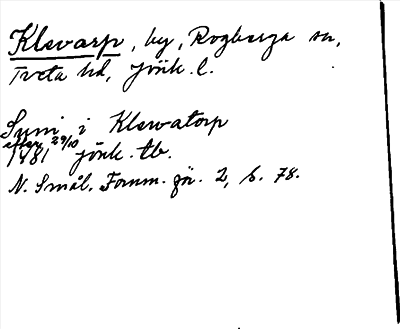 Klevarp, by, Rogberga sn,
Tveta hd, Jönk. l.
Suni i Klewatorp
efter 29/10
1481 Jönk. tb.
N. Smål. Fornm. för. 2, s. 78.